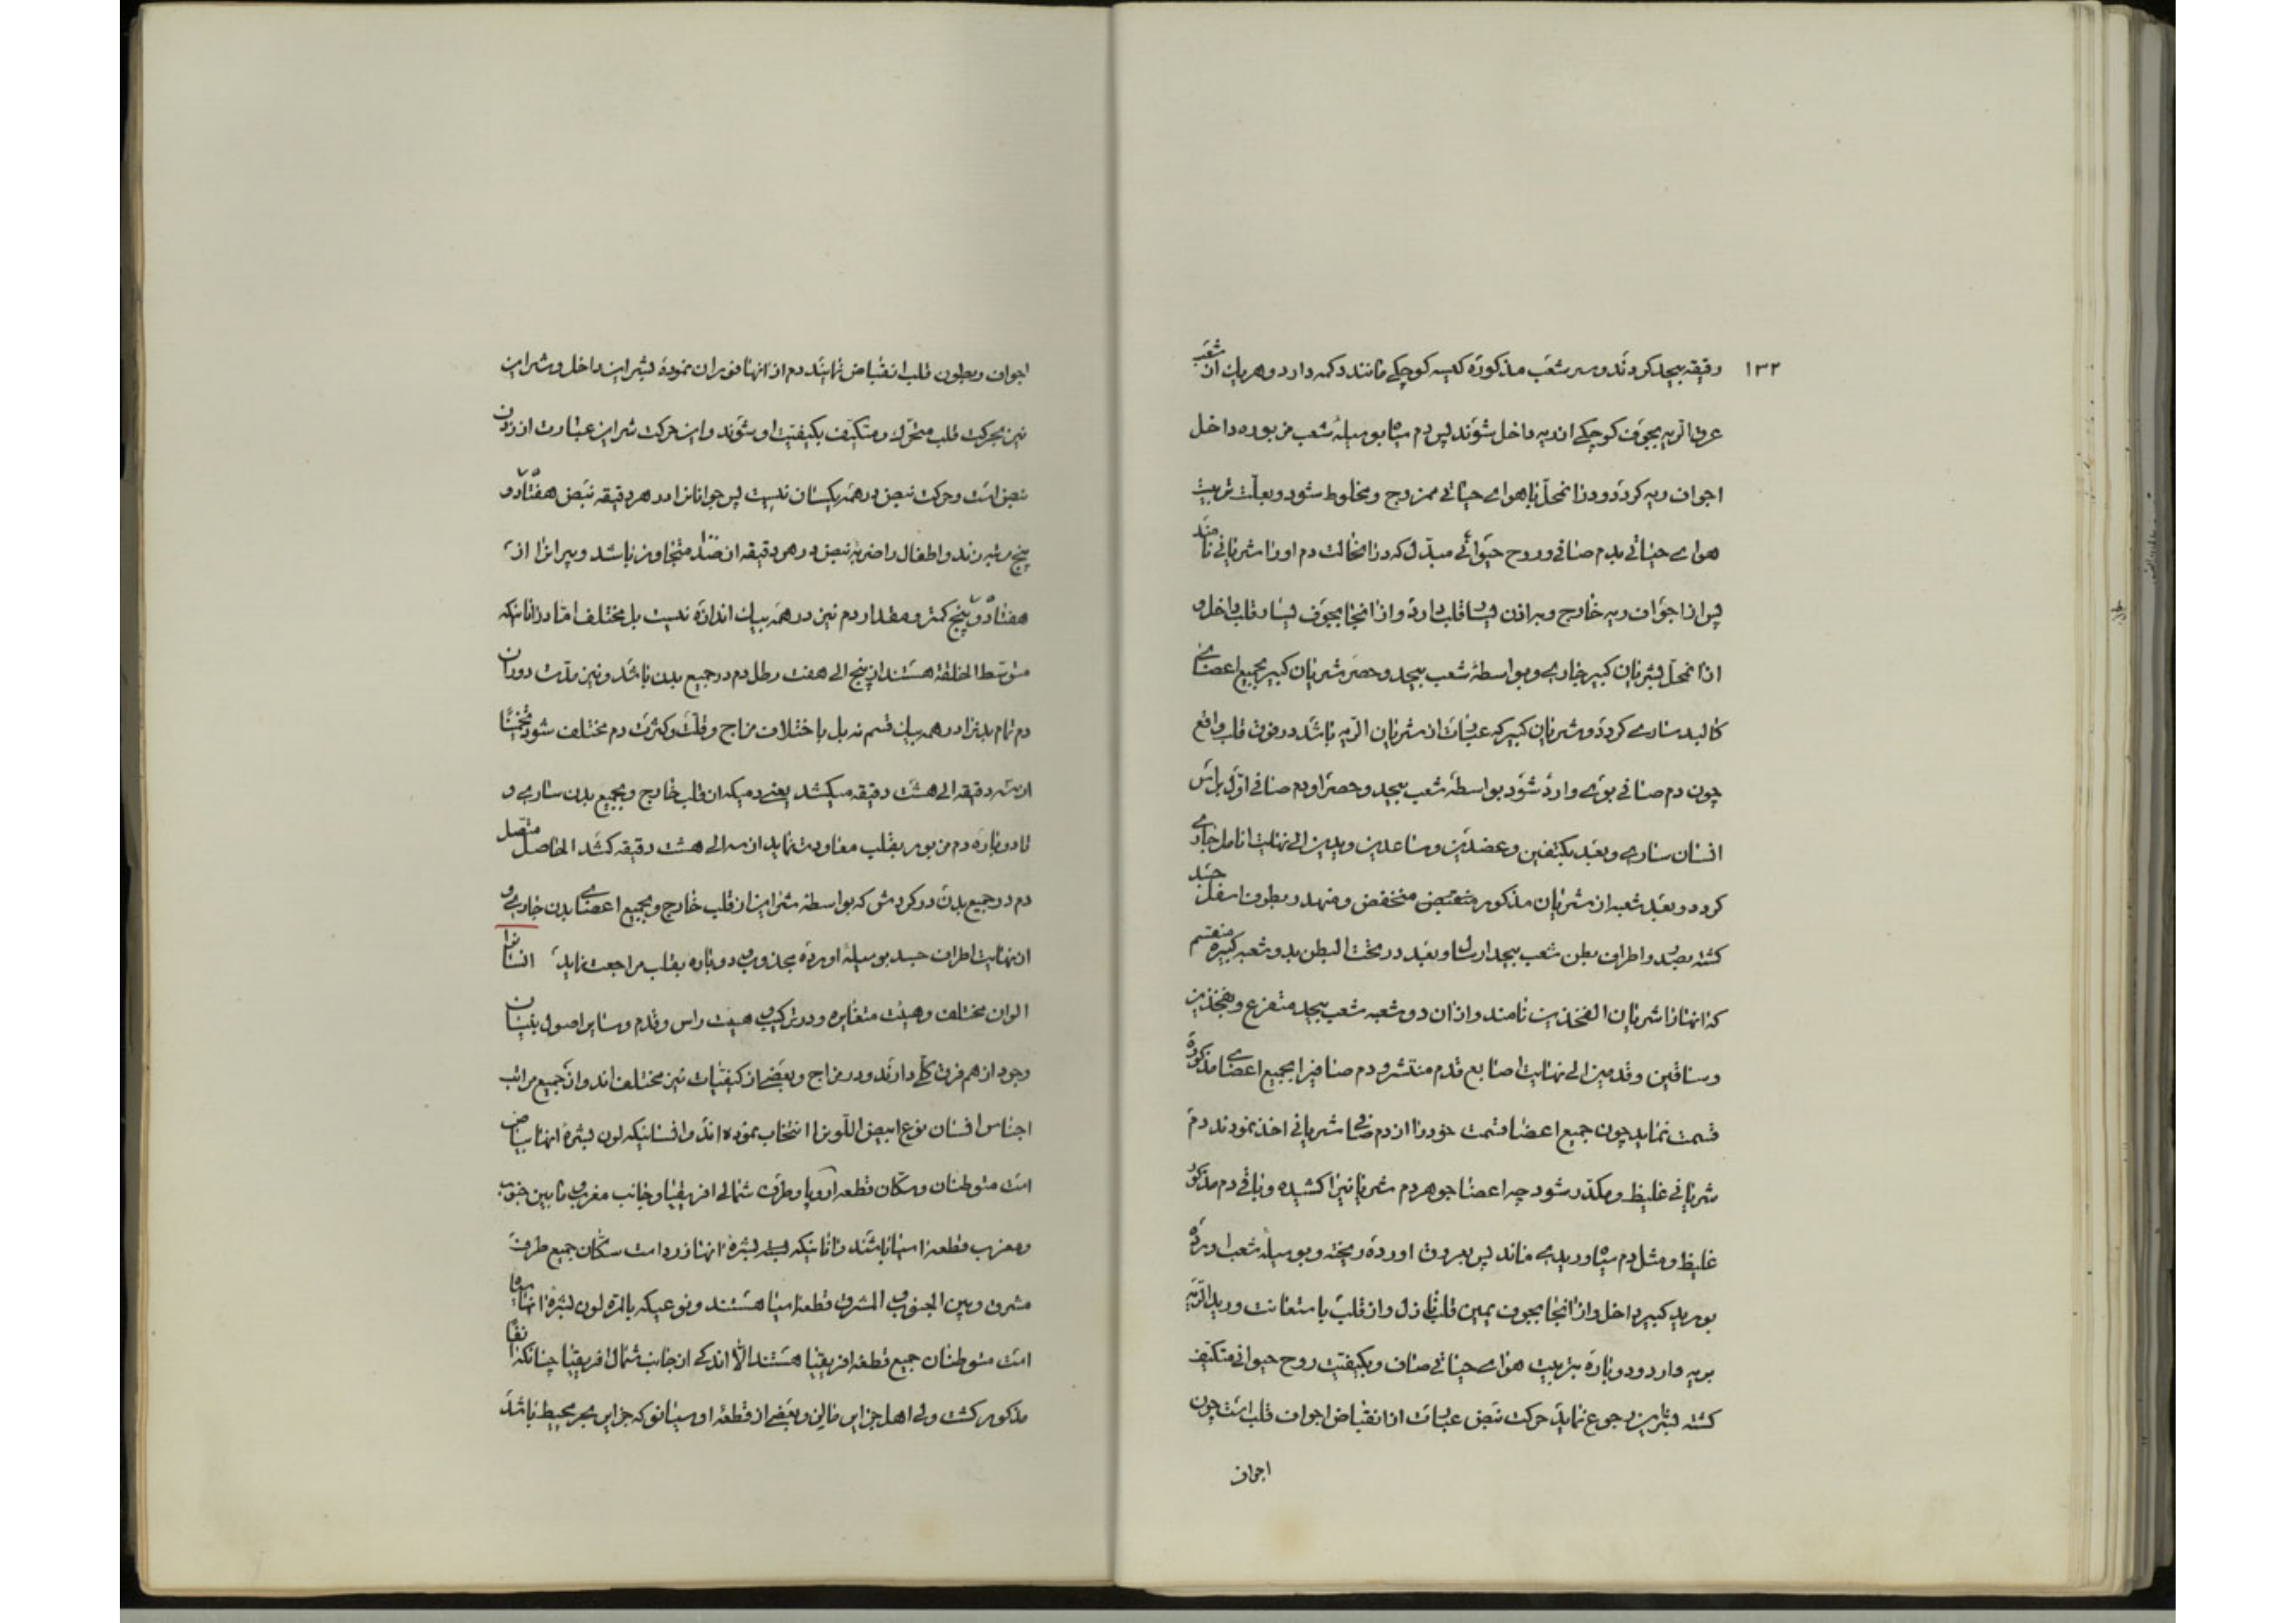 ١٣٢
دقیقه بیحد کردند و سر شعب مذکوره کیسه کوچکے مانند دکمه دارد و هر یک آن شعب
عرق الریه بجوف کوچکے اندر یه داخل شوند پس دم سیاه بوسیلهٔ شعب مزبوره داخل
اجواف ریه کردد و در انمحل با هوای حیاتی ممزوج و مخلوط شود و بعلت تربیت
هوای حیاتی بدم صافی و روح حیوانی مبدل که در انحالت دم او را شریانی نامند
پس از اجواف ریه خارج و بر اذن یسار قلب وارد و از انجا بجوف یسار قلب داخل و
از انمحل بشریان کبیر جاری و بواسطهٔ شعب بیحد و حصر شریان کبیر بجمیع اعضای
کالبد ساری کردد و شریان کبیر که عبارت از شریان الریه باشد در فوق قلب واقع
چون دم صافی بوی وارد شود بواسطهٔ شعب بیحد و حصر او دم صافی اول براس
انسان ساری و بعد بکتفین و عضدین و ساعدین و یدین الی نهایت انامل جاری
کردد و بعد شعبه از شریان مذکور منخفض و در بطون اسفل چند
کشته بصدر و اطراف بطن شعب بیحد ارسال و بعد در تحت البطن بدو شعبه کبیره منقسم
که انها را شریان الفخذین نامند و از ان دو شعبه شعب بیحد متفرع و بفخذین
و ساقین و قدمین الی نهایت اصابع قدم منتشر و دم صافیرا بجمیع اعضای مذکوره
قسمت نماید چون جمیع اعضا قسمت خود را از دم صافی شریانی اخذ نمودند دم
شریانی غلیظ و مکدر شود چه اعضا جوهر دم شریانیرا کشیده و باقی دم مذکور
غلیظ و مثل دم سیاه وریدی ماند پس بعروق اورده ریخته و بوسیلهٔ شعب اورده
بورید کبیر داخل و از انجا بجوف یمین قلب نازل و از قلب با متعانت ورید الریه
بریه وارد و دوباره بتربیت هوای حیاتی صاف و بکیفیت روح حیوانی متکیف
کشته بشرایین رجوع نماید حرکت نبض عبارت از انقباض اجواف قلب است چون
اجواف
اجواف و بطون قلب انقباض نمایند دم از انها فوران نموده بشراین داخل و شراین
نیز بحرکت قلب متحرک و متکیف بکیفیت او شوند و این حرکت شراین عبارت از زدن
نبض است و حرکت نبض در همه یکسان نیست پس جوانانرا در هر دقیقه نبض هفتاد و
پنج مرتبه زند و اطفال را ضربهٔ نبض در هر دقیقه از صد متجاوز باشد و پیرانرا از
هفتاد و پنج کمتر و مقدار دم نیز در همه بیک اندازه نیست بل مختلف اما در انانیکه
متوسط الخلقه هستند از پنج الی هفت رطل دم در جمیع بدن باشد و نیز مدت دوران
دم تمام بدنرا در همه بیک قسم نه بل باختلاف مزاج و قلت و کثرت دم مختلف شود تخمینًا
از سه دقیقه الی هشت دقیقه میکشد یعنی دمیکه از قلب خارج و بجمیع بدن ساری و
تا دوباره دم مزبور بقلب معاودت نماید از سه الی هشت دقیقه کشد الحاصل متصل
دم در جمیع بدن در کردش که بواسطهٔ شراین از قلب خارج و بجمیع اعضای بدن جاری و
از نهایت اطراف جسد بوسیلهٔ اورده مجذوب و دوباره بقلب مراجعت نماید انسانرا
الوان مختلف و هیئت متغایره و در ترکیب هیئت راس و قدم و سایر اصول بنیان
وجود از هم فرق کلی دارند و در مزاج و بعضی از کیفیات نیز مختلف اند و از جمیع مراتب
اجناس انسان نوع ابیض اللون را انتخاب نموده اند و انسانیکه لون بشرهٔ انها بیاض
است متوطنان و سکان قطعه اروپا و طرف شمالی افریقیا و جانب مغرب مابین جنوب
و مغرب قطعه اسیا باشند و انانیکه بشرهٔ انها زرد است سکان جمیع طرف
مشرق و بین الجنوب المشرق قطعه اسیا هستند و نوعیکه بالمره لون بشرهٔ انها سیاه
است متوطنان جمیع قطعه افریقیا هستند الّا اندکی از جانب شمال افریقیا چنانکه انفًا
مذکور کشت ولی اهل جزایر مالین و بعضی از قطعهٔ اوسیانو که جزایر بحر محیط باشد